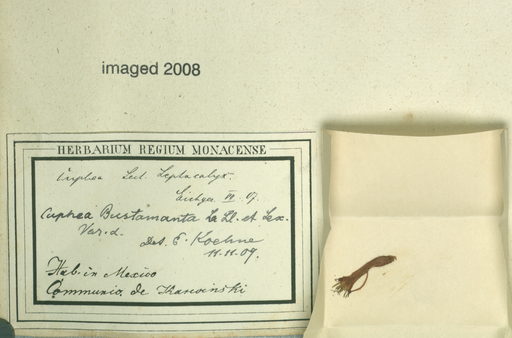 imaged 2008
HERBARIUM REGIUM MONACENSE
Cuphea Sect. Leptocalyx.
Cuphea Bustamanta La Ll. et Lex.
Var. α.
Det. E. Koehne
11.11.07.
Hab. in Mexico
Communic. de Karwinski